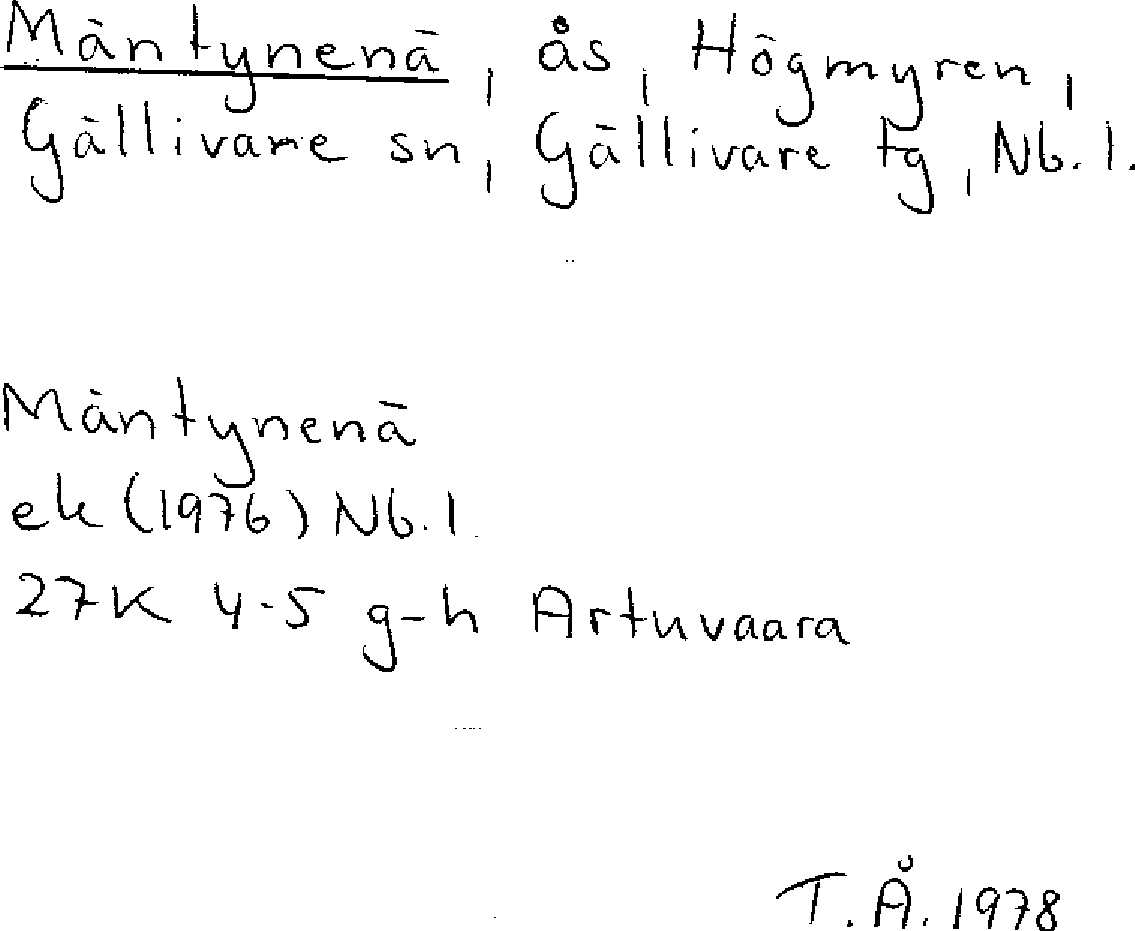 Mäntynenä, ås, Högmyren,
Gällivare sn, Gällivare tg, Nb. l.
Mäntynenä
ek (1976) Nb. l.
27K 4-5 g-h Artuvaara
T. Å. 1978